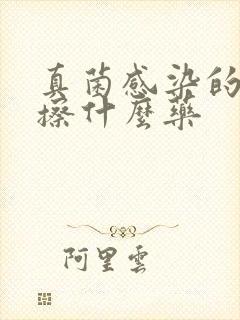 真菌感染的
擦什麼藥
阿里雲